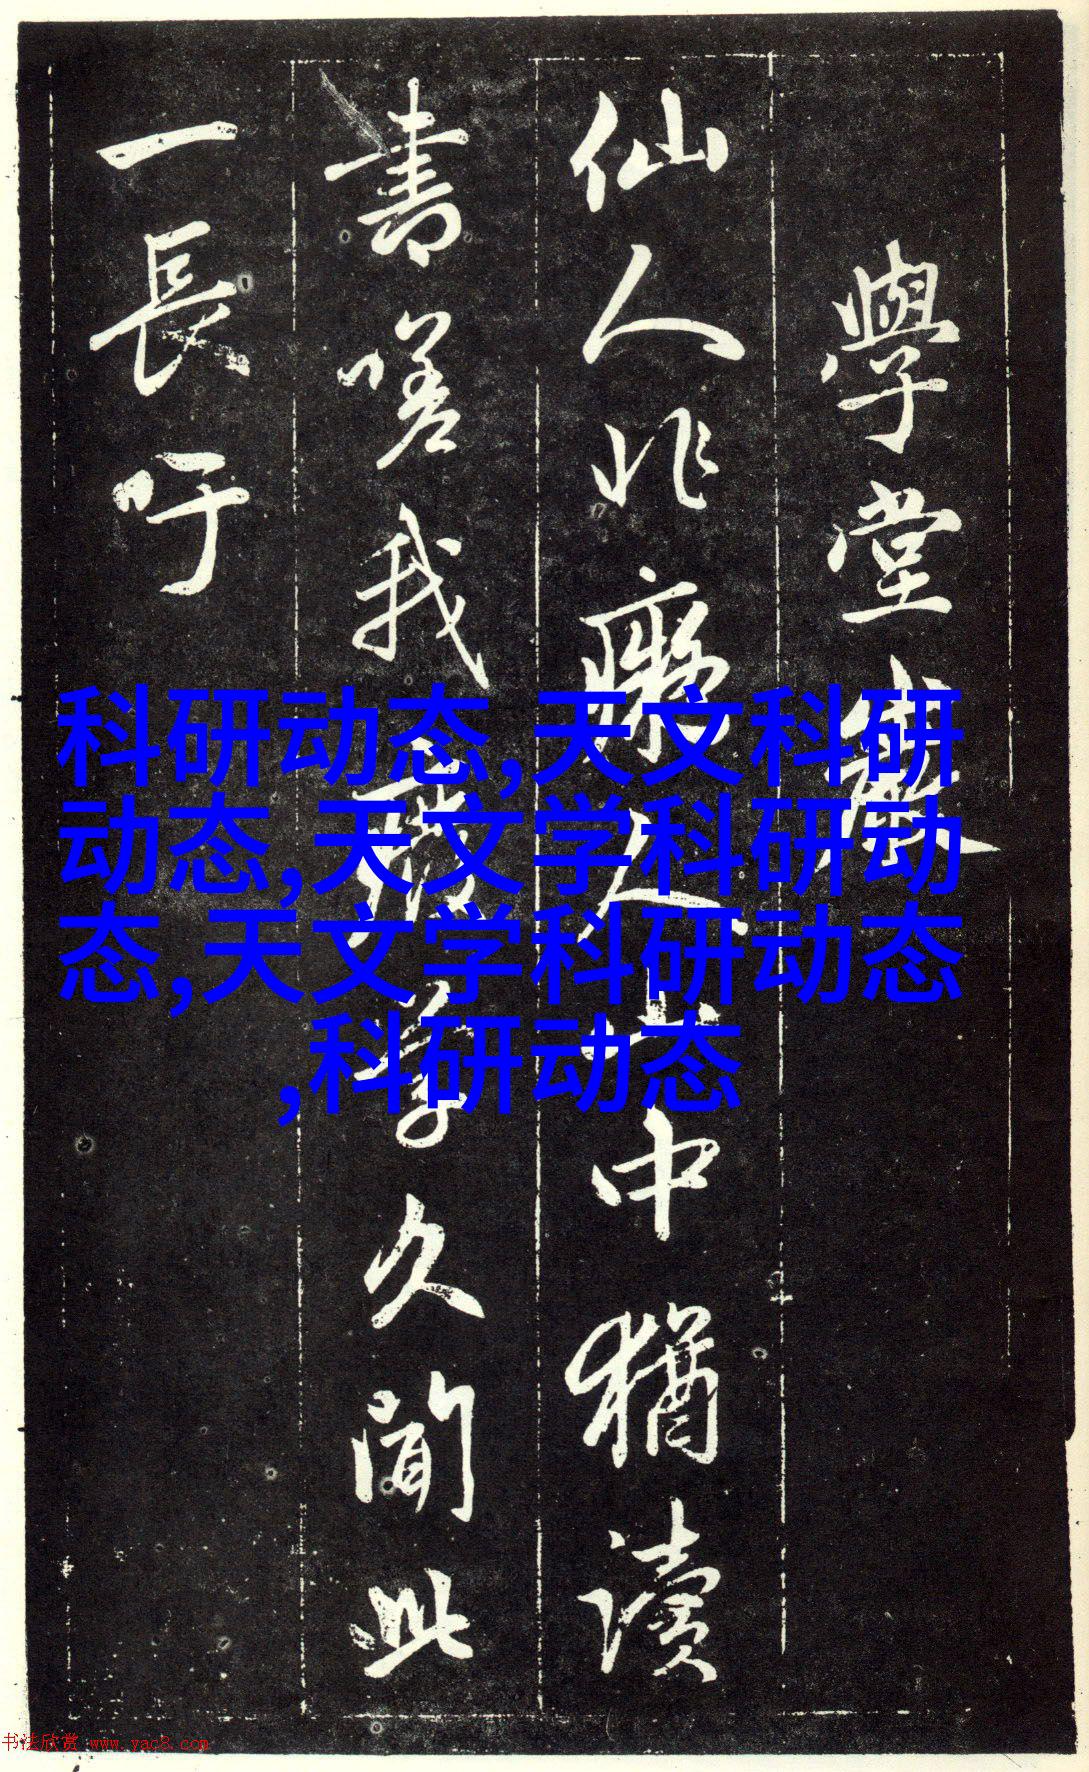 學堂巖
仙人非癡人山中猶讀
書嗟我廢學久聞此
一長吁
科研动态,天文科研
动态,天文学科研动
态,天文学科研动态
,科研动态
书法欣赏 www.yac8.com